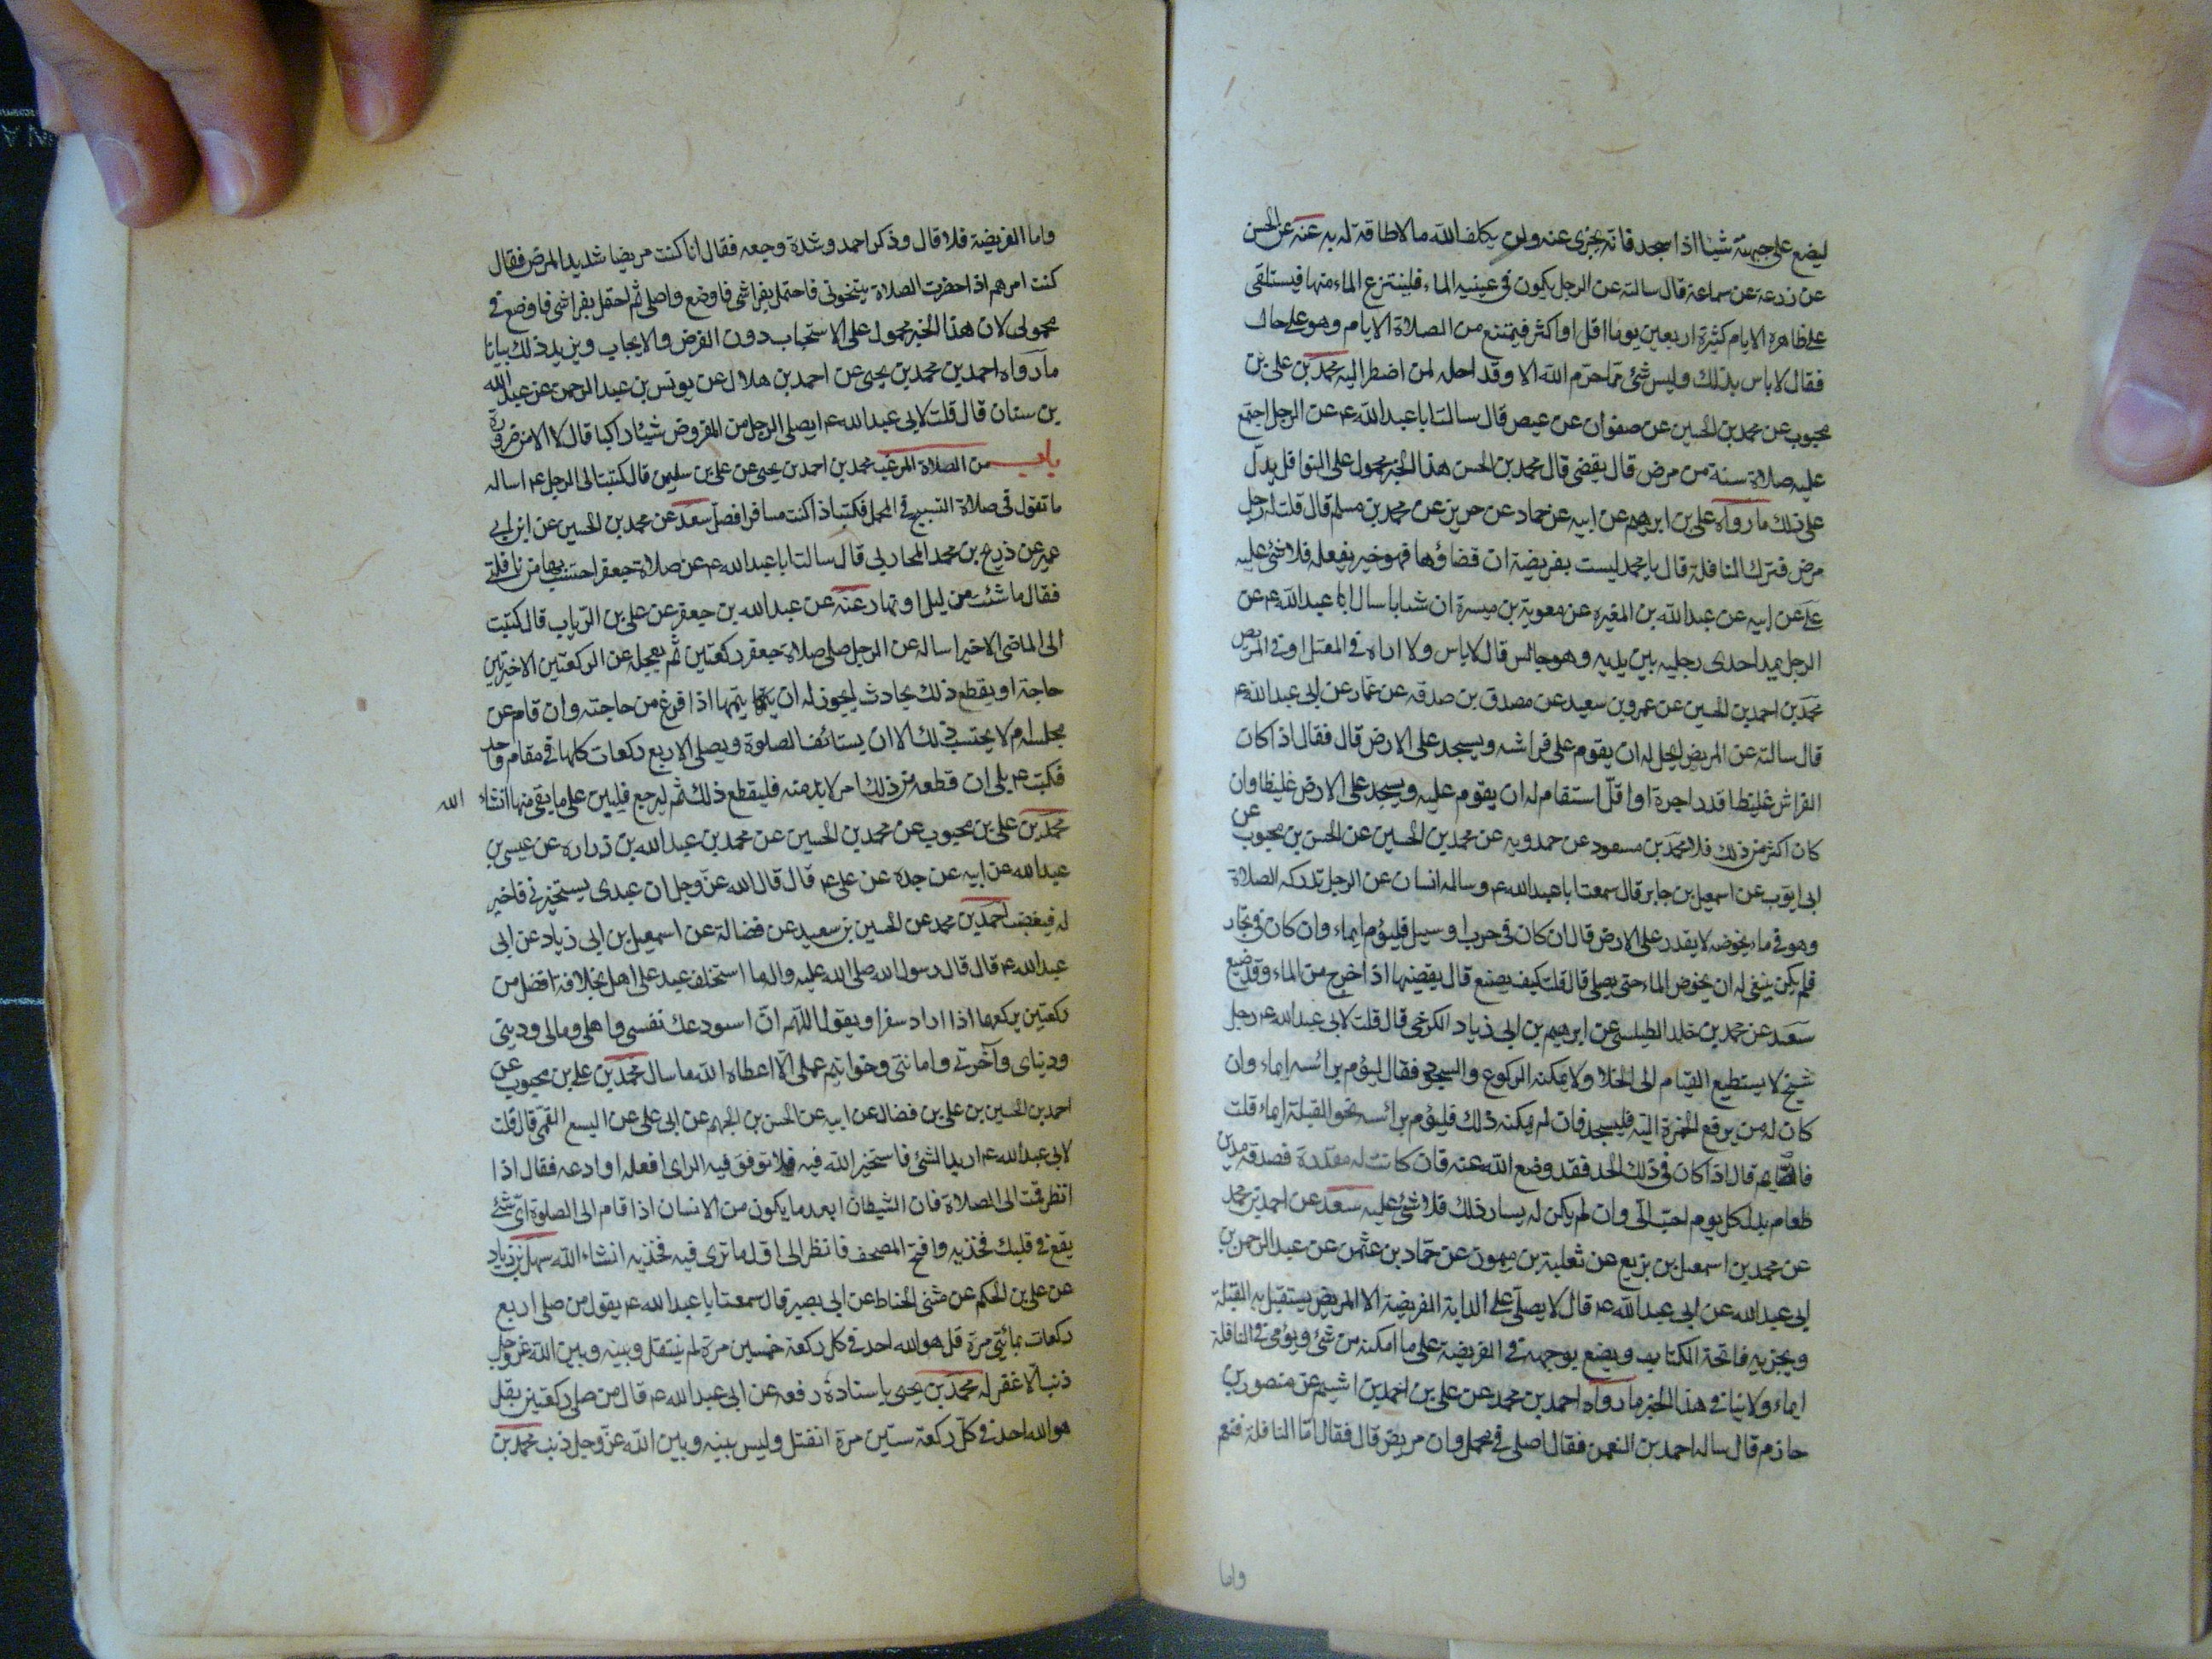 ليضع على جبهته شيئا اذا سجد فانه يجزى عنه ولن يكلف الله ما لا طاقة له به عنه عن الحسن
عن زرعة عن سماعة قال سالته عن الرجل يكون فى عينيه الماء فلينتزع الماء منها فيستلقى
على ظاهره الايام كثيرة اربعين يوما اقل او اكثر فيمتنع من الصلاة الايام وهو على حال
فقال لا باس بذلك وليس شئ مما حرم الله الا وقد احله لمن اضطر اليه محمد بن على بن
محبوب عن محمد بن الحسين عن صفوان عن عيص قال سالت ابا عبد الله ع عن الرجل اجتمع
عليه صلاة سنة من مرض قال يقضى قال محمد بن الحسن هذا الخبر محمول على النوافل يدل
على ذلك ما رواه على بن ابرهيم عن ابيه عن حماد عن حريز عن محمد بن مسلم قال قلت له رجل
مرض فترك النافلة قال يا محمد ليست بفريضة ان قضاؤها فهو خير يفعله فلا شئ عليه
على عن ابيه عن عبد الله بن المغيره عن معوية بن ميسرة ان شابا سال ابا عبد الله ع عن
الرجل يمد احدى رجليه بين يديه وهو جالس قال لا باس ولا اراه فى المعتل او فى المريض
محمد بن احمد بن الحسين عن عمرو بن سعيد عن مصدق بن صدقه عن عمار عن ابى عبد الله ع
قال سالته عن المريض ايحل له ان يقوم على فراشه ويسجد على الارض قال فقال اذا كان
الفراش غليظا قدر اجرة او اقل استقام له ان يقوم عليه ويسجد على الارض غليظا وان
كان اكثر من ذلك فلا محمد بن مسعود عن حمدويه عن محمد بن الحسين عن الحسن بن محبوب عن
ابى ايوب عن اسمعيل بن جابر قال سمعت ابا عبد الله ع وساله انسان عن الرجل تدركه الصلاة
وهو فى ماء يخوضه لا يقدر على الارض قال ان كان فى حرب او سبيل فليؤم ايماء وان كان فى تجار
فلم يكن ينبغى له ان يخوض الماء حتى يصلى قال قلت كيف يصنع قال يقضيها اذا خرج من الماء وقد ضيع
سعد عن محمد بن خالد الطيلسى عن ابرهيم بن ابى زياد الكرخى قال قلت لابى عبد الله ع رجل
شيخ لا يستطيع القيام الى الخلا ولا يمكنه الركوع والسجود فقال ليؤم برأسه ايماء وان
كان له من يرفع الخمرة اليه فليسجد فان لم يمكنه ذلك فليؤم برأسه نحو القبلة ايماء قلت
فالصيام قال اذا كان فى ذلك الحد فقد وضع الله عنه فان كانت له مقدرة فصدقه مد من
طعام بدل كل يوم احب الى وان لم يكن له يسار ذلك فلا شئ عليه سعد عن احمد بن محمد
عن محمد بن اسمعيل بن بزيع عن ثعلبة بن ميمون عن حماد بن عثمن عن عبد الرحمن بن
ابى عبد الله عن ابى عبد الله ع قال لا يصلى على الدابة الفريضة الا المريض يستقبل به القبلة
ويجزيه فاتحة الكتاب ويضع بوجهه فى الفريضة على ما امكنه من شئ ويؤمى فى النافلة
ايماء ولا ينافى هذا الخبر ما رواه احمد بن محمد عن على بن احمد بن اشيم عن منصور بن
حازم قال ساله احمد بن النعمن فقال اصلى فى محمل وان مريض قال فقال اما النافلة فنعم
واما
واما الفريضة فلا قال وذكر احمد وشدة وجعه فقال انا كنت مريضا شديد المرض فقال
كنت امرهم اذا حضرت الصلاة فاحتمل بفراشى فاوضع واصلى ثم احتمل بفراشى فاوضع فى
محملى لان هذا الخبر محمول على الاستحباب دون الفرض والايجاب ويزيد ذلك بيانا
ما رواه احمد بن محمد بن يحيى عن احمد بن هلال عن يونس بن عبد الرحمن عن عبد الله
بن سنان قال قلت لابى عبد الله ع ايصلى الرجل من المفروض شيئا راكبا قال لا الا من ضرورة
باب من الصلاة المرغب محمد بن احمد بن يحيى عن على بن سليمن قال كتبت الى الرجل ع اساله
ما تقول فى صلاة التسبيح فى المحمل فكتب اذا كنت مسافرا فصل سعد عن محمد بن الحسين عن ابن ابى
عمير عن ذريح بن محمد المحاربى قال سالت ابا عبد الله ع عن صلاة جعفر احتسب بها من نافلتى
فقال ما شئت من ليل او نهار عنه عن عبد الله بن جعفر عن على بن الريان قال كتبت
الى الماضى الاخير اساله عن الرجل صلى صلاة جعفر ركعتين ثم يعجله عن الركعتين الاخيرتين
حاجة او يقطع ذلك بحادث ايجوز له ان يتمها اذا فرغ من حاجته وان قام عن
مجلسه ام لا يحتسب ذلك الا ان يستانف الصلوة ويصلى الاربع ركعات كلها فى مقام واحد
فكتب ع بلى ان قطعه من ذلك امر لا بد منه فليقطع ذلك ثم ليرجع فليبن على ما بقى منها انشاء الله
محمد بن على بن محبوب عن محمد بن الحسين عن محمد بن عبد الله بن زراره عن عيسى بن
عبد الله عن ابيه عن جده عن على ع قال قال الله عز وجل ان عبدى يستخيرنى فاخير
له فيغضب احمد بن محمد عن الحسين بن سعيد عن فضالة عن اسمعيل بن ابى زياد عن ابى
عبد الله ع قال قال رسول الله صلى الله عليه واله ما استخلف عبد على اهل بخلافة افضل من
ركعتين يركعهما اذا اراد سفرا ويقول اللهم انى استودعك نفسى واهلى ومالى ودينى
ودنياى وآخرتى وامانتى وخواتيم عملى الا اعطاه الله ما سال محمد بن على بن محبوب عن
احمد بن الحسين بن على بن فضال عن ابيه عن الحسن بن الجهم عن ابى على عن اليسع القمى قال قلت
لابى عبد الله ع اريد الشئ فاستخير الله فيه فلا توفق فيه الراى افعله او ادعه فقال اذا
انظر قمت الى الصلاة فان الشيطان ابعد ما يكون من الانسان اذا قام الى الصلوة اى شئ
يقع فى قلبك فخذ به وافتح المصحف فانظر الى اول ما ترى فيه فخذ به انشاء الله سهل بن زياد
عن على بن الحكم عن مثنى الحناط عن ابى بصير قال سمعت ابا عبد الله ع يقول من صلى اربع
ركعات بمائتى مرة قل هو الله احد فى كل ركعة خمسين مرة لم ينتقل وبينه وبين الله عز وجل
ذنب الا غفر له محمد بن يحيى باسناده رفعه عن ابى عبد الله ع قال من صلى ركعتين بقل
هو الله احد فى كل ركعة ستين مرة انفتل وليس بينه وبين الله عز وجل ذنب محمد بن